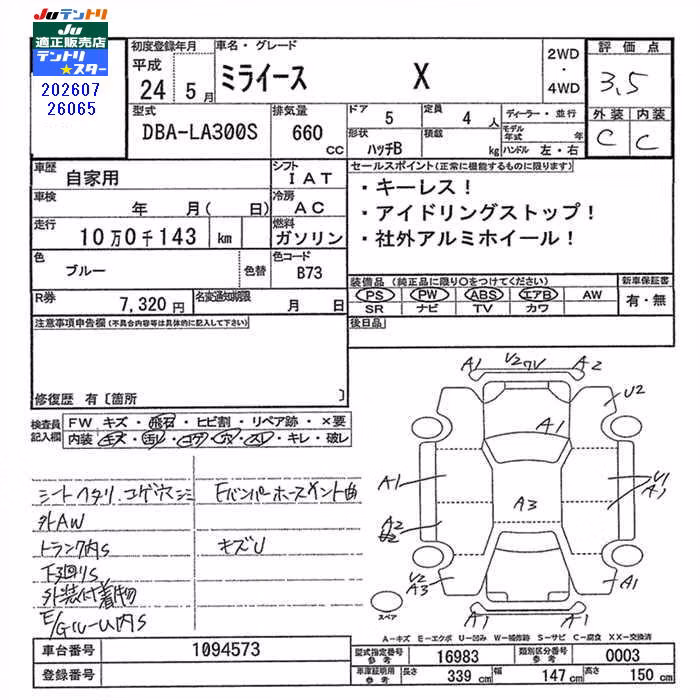 JUテントリ
JU
適正販売店
テントリ
★スター
202607
26065
初度登録年月
平成
24 5月
車名・グレード
ミライース X
2WD
・
4WD
評価点
3.5
型式
DBA-LA300S
排気量
660 cc
ドア 5
定員 4人
形状 ハッチB
積載 kg
ディーラー・並行
モデル年式 年
ハンドル 左・右
外装 内装
C C
車歴 自家用
シフト IAT
車検 年 月( 日)
冷房 AC
走行 10万0千143 km
燃料 ガソリン
色 ブルー 色替
色コード B73
R券 7,320円
名変通知期限 月 日
セールスポイント(正常に機能するものに限ります)
・キーレス!
・アイドリングストップ!
・社外アルミホイール!
装備品(純正品に限り○をつけてください)
新車保証書
PS PW ABS エアB AW
SR ナビ TV カワ
有・無
後日品
注意事項申告欄(不具合内容等は具体的に記入して下さい)
修復歴 有〔箇所 〕
検査員記入欄
FW キズ・飛石・ヒビ割・リペア跡・×要
内装 キズ・汚レ・コゲ・穴・スレ・キレ・破レ
シートヘタリ.コゲ穴シミ
Fバンパーホースメント曲
外AW
トランク内S
キズU
下廻りS
外装付着物
E/Gルーム内S
A1 U2 7V A2
U2
A1
A1
A3
U1
A1
A2
U2
U2
A3
A1
A1 A1
スペア
A-キズ E-エクボ U-凹み W-補修跡 S-サビ C-腐食 XX-交換済
車台番号 1094573
登録番号
型式指定番号 参考 16983
類別区分番号 参考 0003
車庫証明用 参考 長さ 339cm 幅 147cm 高さ 150cm